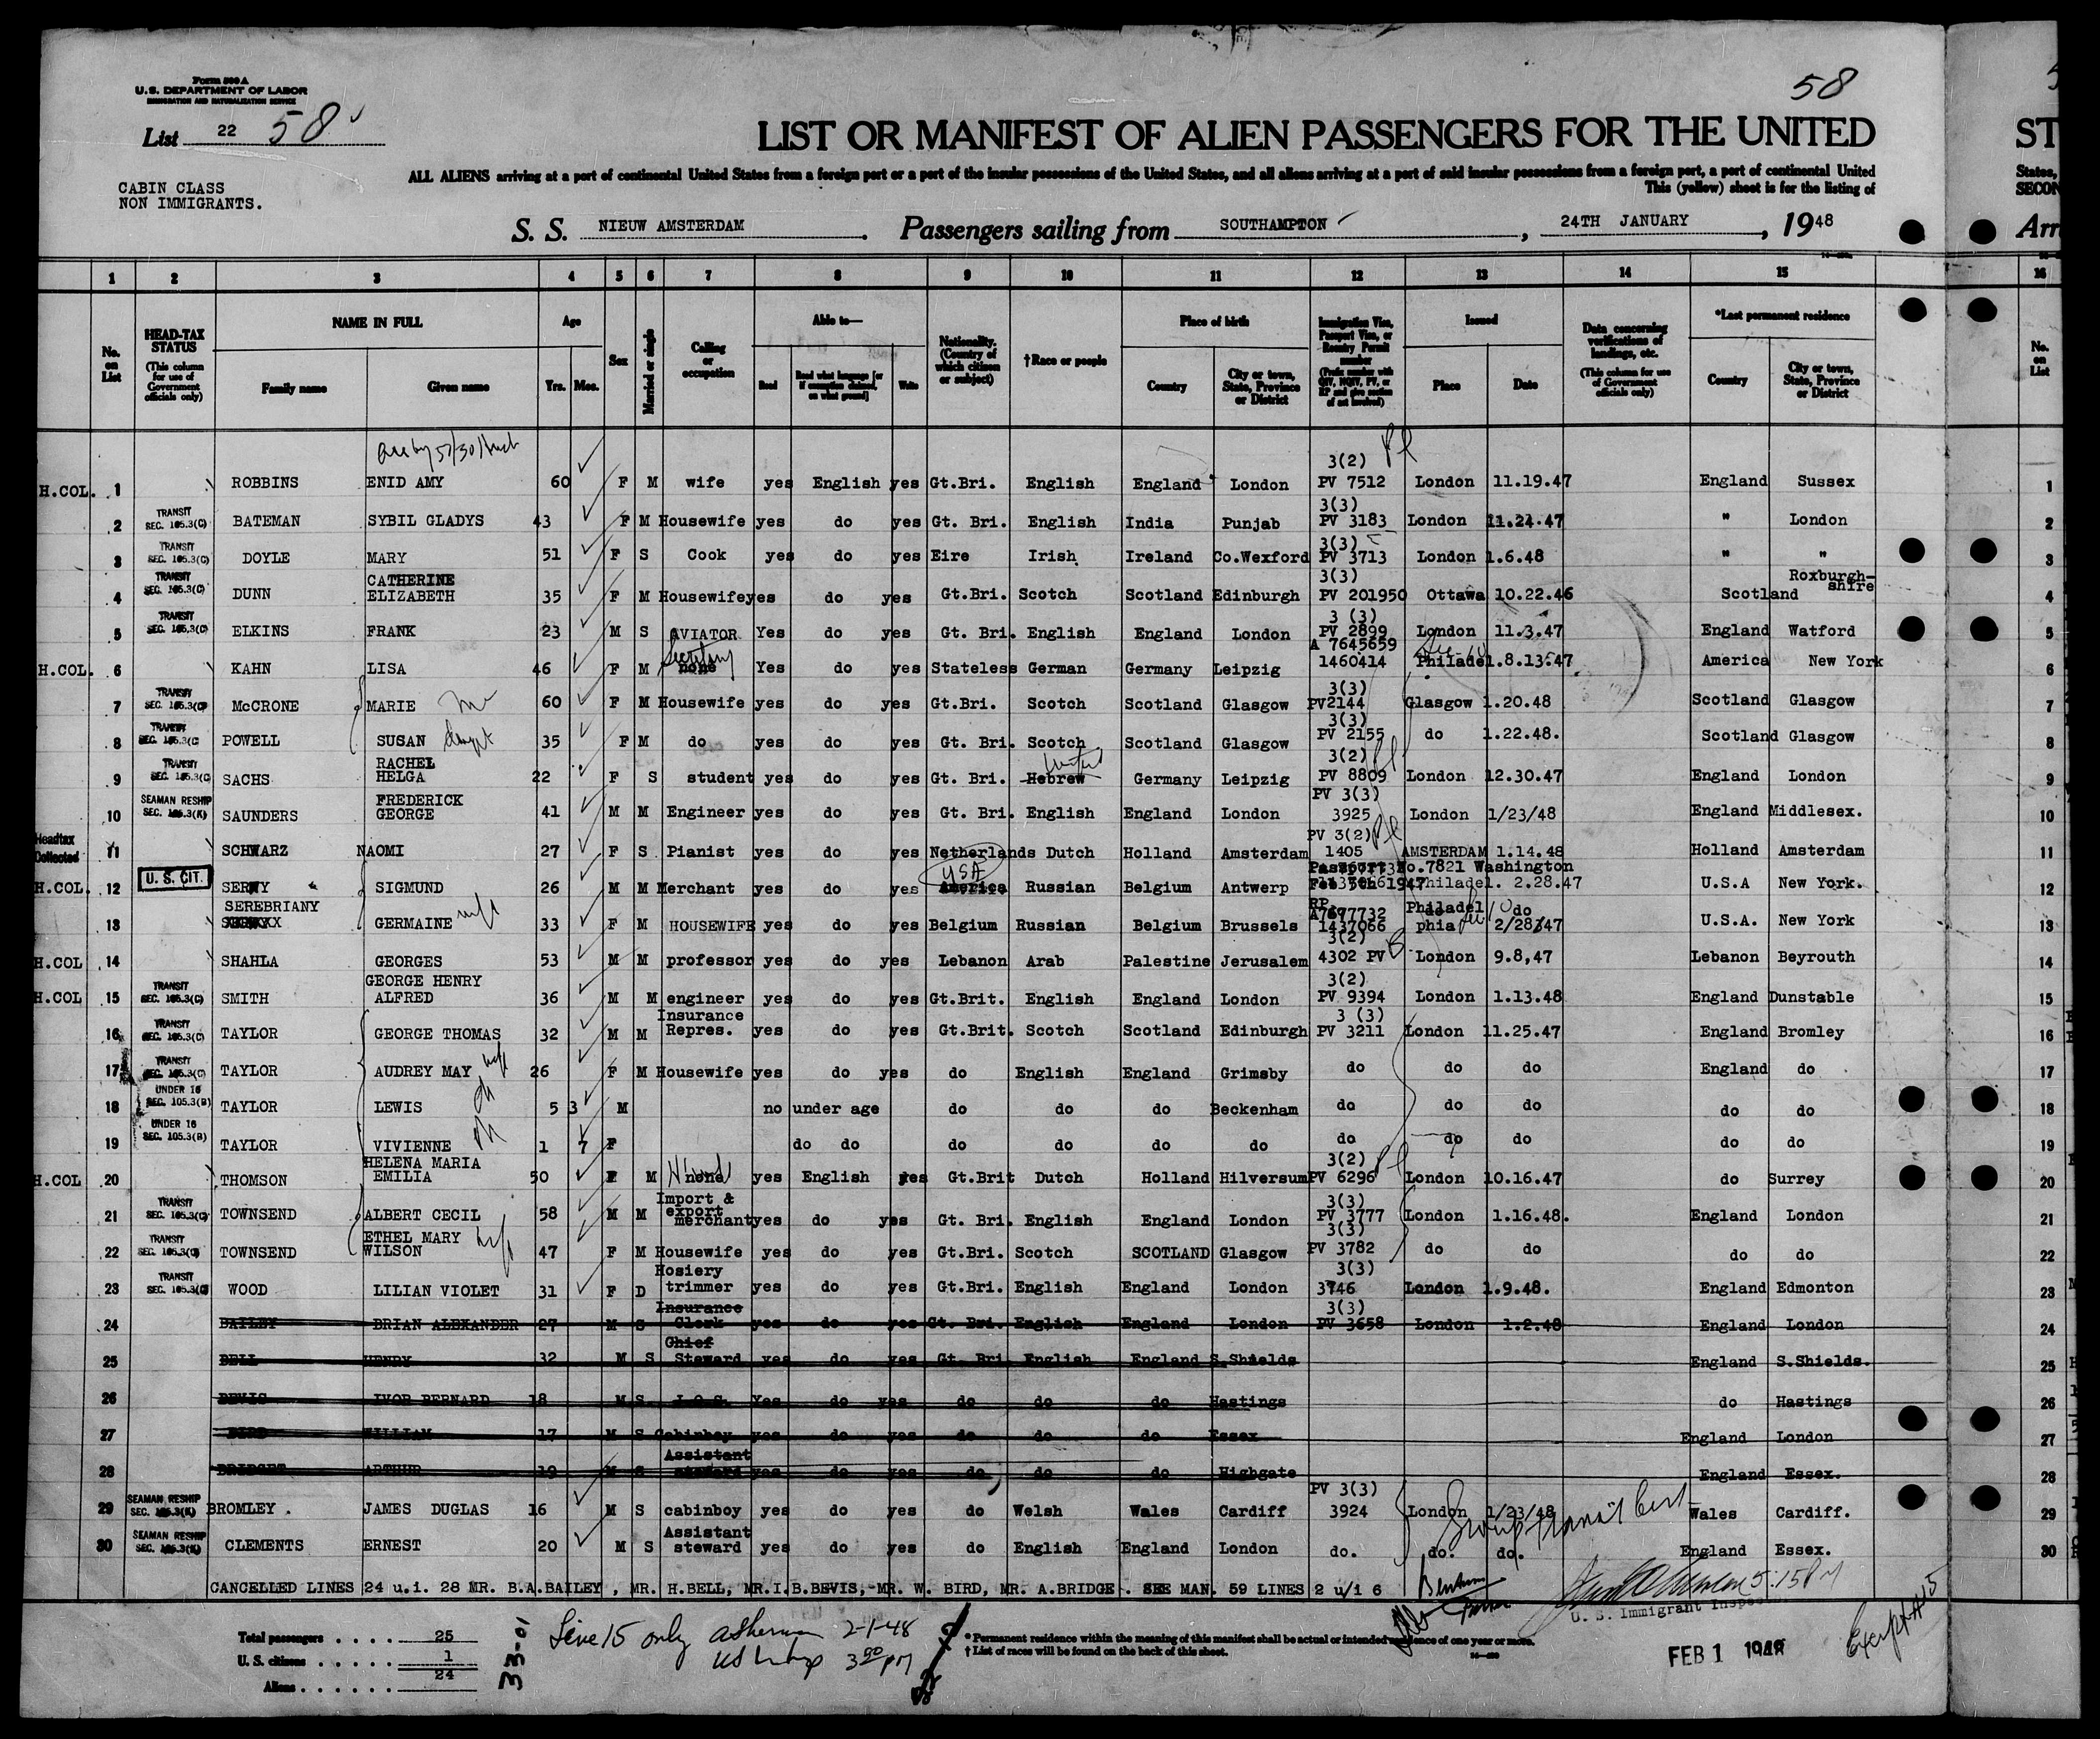 Form 500 A
U.S. DEPARTMENT OF LABOR
IMMIGRATION AND NATURALIZATION SERVICE
List 22 58
58
LIST OR MANIFEST OF ALIEN PASSENGERS FOR THE UNITED
ST
CABIN CLASS
NON IMMIGRANTS.
ALL ALIENS arriving at a port of continental United States from a foreign port or a port of the insular possessions of the United States, and all aliens arriving at a port of said insular possessions from a foreign port, a part of continental United
States,
This (yellow) sheet is for the listing of
SECON
S. S. NIEUW AMSTERDAM . Passengers sailing from SOUTHAMPTON , 24TH JANUARY , 1948
Arri
1 2 3 4 5 6 7 8 9 10 11 12 13 14 15 16
No. on List
HEAD-TAX STATUS (This column for use of Government officials only)
NAME IN FULL Family name Given name
Age Yrs. Mos.
Sex
Married or single
Calling or occupation
Able to— Read Read what language [or if exemption claimed, on what ground] Write
Nationality. (Country of which citizen or subject)
†Race or people
Place of birth Country City or town, State, Province or District
Immigration Visa, Passport Visa, or Reentry Permit number (Prefix number with QIV, NQIV, PV, or RP and give section of act involved)
Issued Place Date
Data concerning verifications of landings, etc. (This column for use of Government officials only)
*Last permanent residence Country City or town, State, Province or District
No. on List
H.COL. 1 ROBBINS ENID AMY 60 F M wife yes English yes Gt.Bri. English England London 3(2) PV 7512 London 11.19.47 England Sussex 1
2 TRANSIT SEC. 105.3(C) BATEMAN SYBIL GLADYS 43 F M Housewife yes do yes Gt. Bri. English India Punjab 3(3) PV 3183 London 11.24.47 " London 2
3 TRANSIT SEC. 105.3(C) DOYLE MARY 51 F S Cook yes do yes Eire Irish Ireland Co.Wexford 3(3) PV 3713 London 1.6.48 " " 3
4 TRANSIT SEC. 105.3(C) DUNN CATHERINE ELIZABETH 35 F M Housewife yes do yes Gt.Bri. Scotch Scotland Edinburgh 3(3) PV 201950 Ottawa 10.22.46 Scotland Roxburgh-shire 4
5 TRANSIT SEC. 105.3(C) ELKINS FRANK 23 M S AVIATOR Yes do yes Gt. Bri. English England London 3 (3) PV 2899 London 11.3.47 England Watford 5
H.COL. 6 KAHN LISA 46 F M none Secretary Yes do yes Stateless German Germany Leipzig A 7645659 1460414 Philadel. 8.13.47 America New York 6
7 TRANSIT SEC. 105.3(C) McCRONE MARIE 60 F M Housewife yes do yes Gt.Bri. Scotch Scotland Glasgow 3(3) PV2144 Glasgow 1.20.48 Scotland Glasgow 7
8 TRANSIT SEC. 105.3(C POWELL SUSAN 35 F M do yes do yes Gt. Bri. Scotch Scotland Glasgow 3(3) PV 2155 do 1.22.48. Scotland Glasgow 8
9 TRANSIT SEC. 105.3(C) SACHS RACHEL HELGA 22 F S student yes do yes Gt. Bri. Hebrew Germany Leipzig 3(2) PV 8809 London 12.30.47 England London 9
10 SEAMAN RESHIP SEC. 105.3(K) SAUNDERS FREDERICK GEORGE 41 M M Engineer yes do yes Gt. Bri. English England London PV 3(3) 3925 London 1/23/48 England Middlesex. 10
Headtax Collected 11 SCHWARZ NAOMI 27 F S Pianist yes do yes Netherlands Dutch Holland Amsterdam PV 3(2) 1405 AMSTERDAM 1.14.48 Holland Amsterdam 11
H.COL. 12 U.S. CIT. SERNY SIGMUND 26 M M Merchant yes do yes America USA Russian Belgium Antwerp Passport No.7821 Washington Feb 5th 1947 Philadel. 2.28.47 U.S.A New York. 12
13 SEREBRIANY GERMAINE wife 33 F M HOUSEWIFE yes do yes Belgium Russian Belgium Brussels RP. A7697732 1437066 Philadelphia do 2/28/47 U.S.A. New York 13
H.COL 14 SHAHLA GEORGES 53 M M professor yes do yes Lebanon Arab Palestine Jerusalem 3(2) 4302 PV London 9.8,47 Lebanon Beyrouth 14
H.COL 15 TRANSIT SEC. 105.3(C) SMITH GEORGE HENRY ALFRED 36 M M engineer yes do yes Gt.Brit. English England London 3(2) PV 9394 London 1.13.48 England Dunstable 15
16 TRANSIT SEC. 105.3(C) TAYLOR GEORGE THOMAS 32 M M Insurance Repres. yes do yes Gt.Brit. Scotch Scotland Edinburgh 3 (3) PV 3211 London 11.25.47 England Bromley 16
17 TRANSIT SEC. 105.3(C) TAYLOR AUDREY MAY wife 26 F M Housewife yes do yes do English England Grimsby do do do England do 17
18 UNDER 16 SEC. 105.3(B) TAYLOR LEWIS ch 5 3 M no under age do do do Beckenham do do do do do 18
19 UNDER 16 SEC. 105.3(B) TAYLOR VIVIENNE ch 1 7 F do do do do do do do do do do do 19
H.COL 20 THOMSON HELENA MARIA EMILIA 50 F M none yes English yes Gt.Brit Dutch Holland Hilversum 3(2) PV 6296 London 10.16.47 do Surrey 20
21 TRANSIT SEC. 105.3(C) TOWNSEND ALBERT CECIL 58 M M Import & export merchant yes do yes Gt. Bri. English England London 3(3) PV 3777 London 1.16.48. England London 21
22 TRANSIT SEC. 105.3(C) TOWNSEND ETHEL MARY WILSON wife 47 F M Housewife yes do yes Gt.Bri. Scotch SCOTLAND Glasgow 3(3) PV 3782 do do do do 22
23 TRANSIT SEC. 105.3(C) WOOD LILIAN VIOLET 31 F D Hosiery trimmer yes do yes Gt.Bri. English England London 3(3) 3746 London 1.9.48. England Edmonton 23
24 BAILEY BRIAN ALEXANDER 27 M S Insurance Clerk yes do yes Gt. Bri. English England London 3(3) PV 3658 London 1.2.48 England London 24
25 BELL HENRY 32 M S Chief Steward yes do yes Gt. Bri English England S.Shields England S.Shields. 25
26 BEVIS IVOR BERNARD 18 M S. Yes do yes do do do Hastings do Hastings 26
27 BIRD WILLIAM 17 M S Cabinboy yes do yes do do do Essex England London 27
28 BRIDGET ARTHUR 19 M S Assistant steward yes do yes do do do Highgate England Essex. 28
29 SEAMAN RESHIP SEC. 105.3(K) BROMLEY . JAMES DUGLAS 16 M S cabinboy yes do yes do Welsh Wales Cardiff PV 3(3) 3924 London 1/23/48 Wales Cardiff. 29
30 SEAMAN RESHIP SEC. 105.3(K) CLEMENTS ERNEST 20 M S Assistant steward yes do yes do English England London do. do. do. England Essex. 30
Group transit Cert
CANCELLED LINES 24 u.i. 28 MR. B.A.BAILEY , MR. H.BELL, MR.I.B.BEVIS, MR. W. BIRD, MR. A.BRIDGE . SEE MAN. 59 LINES 2 u/i 6
5:15 PM
U. S. Immigrant Inspector
Total passengers . . . . 25
U. S. citizens . . . . . 1
Aliens . . . . . . 24
33-01
Line 15 only 2-1-48
3 00 PM
* Permanent residence within the meaning of this manifest shall be actual or intended residence of one year or more.
† List of races will be found on the back of this sheet.
FEB 1 1948
Except #15